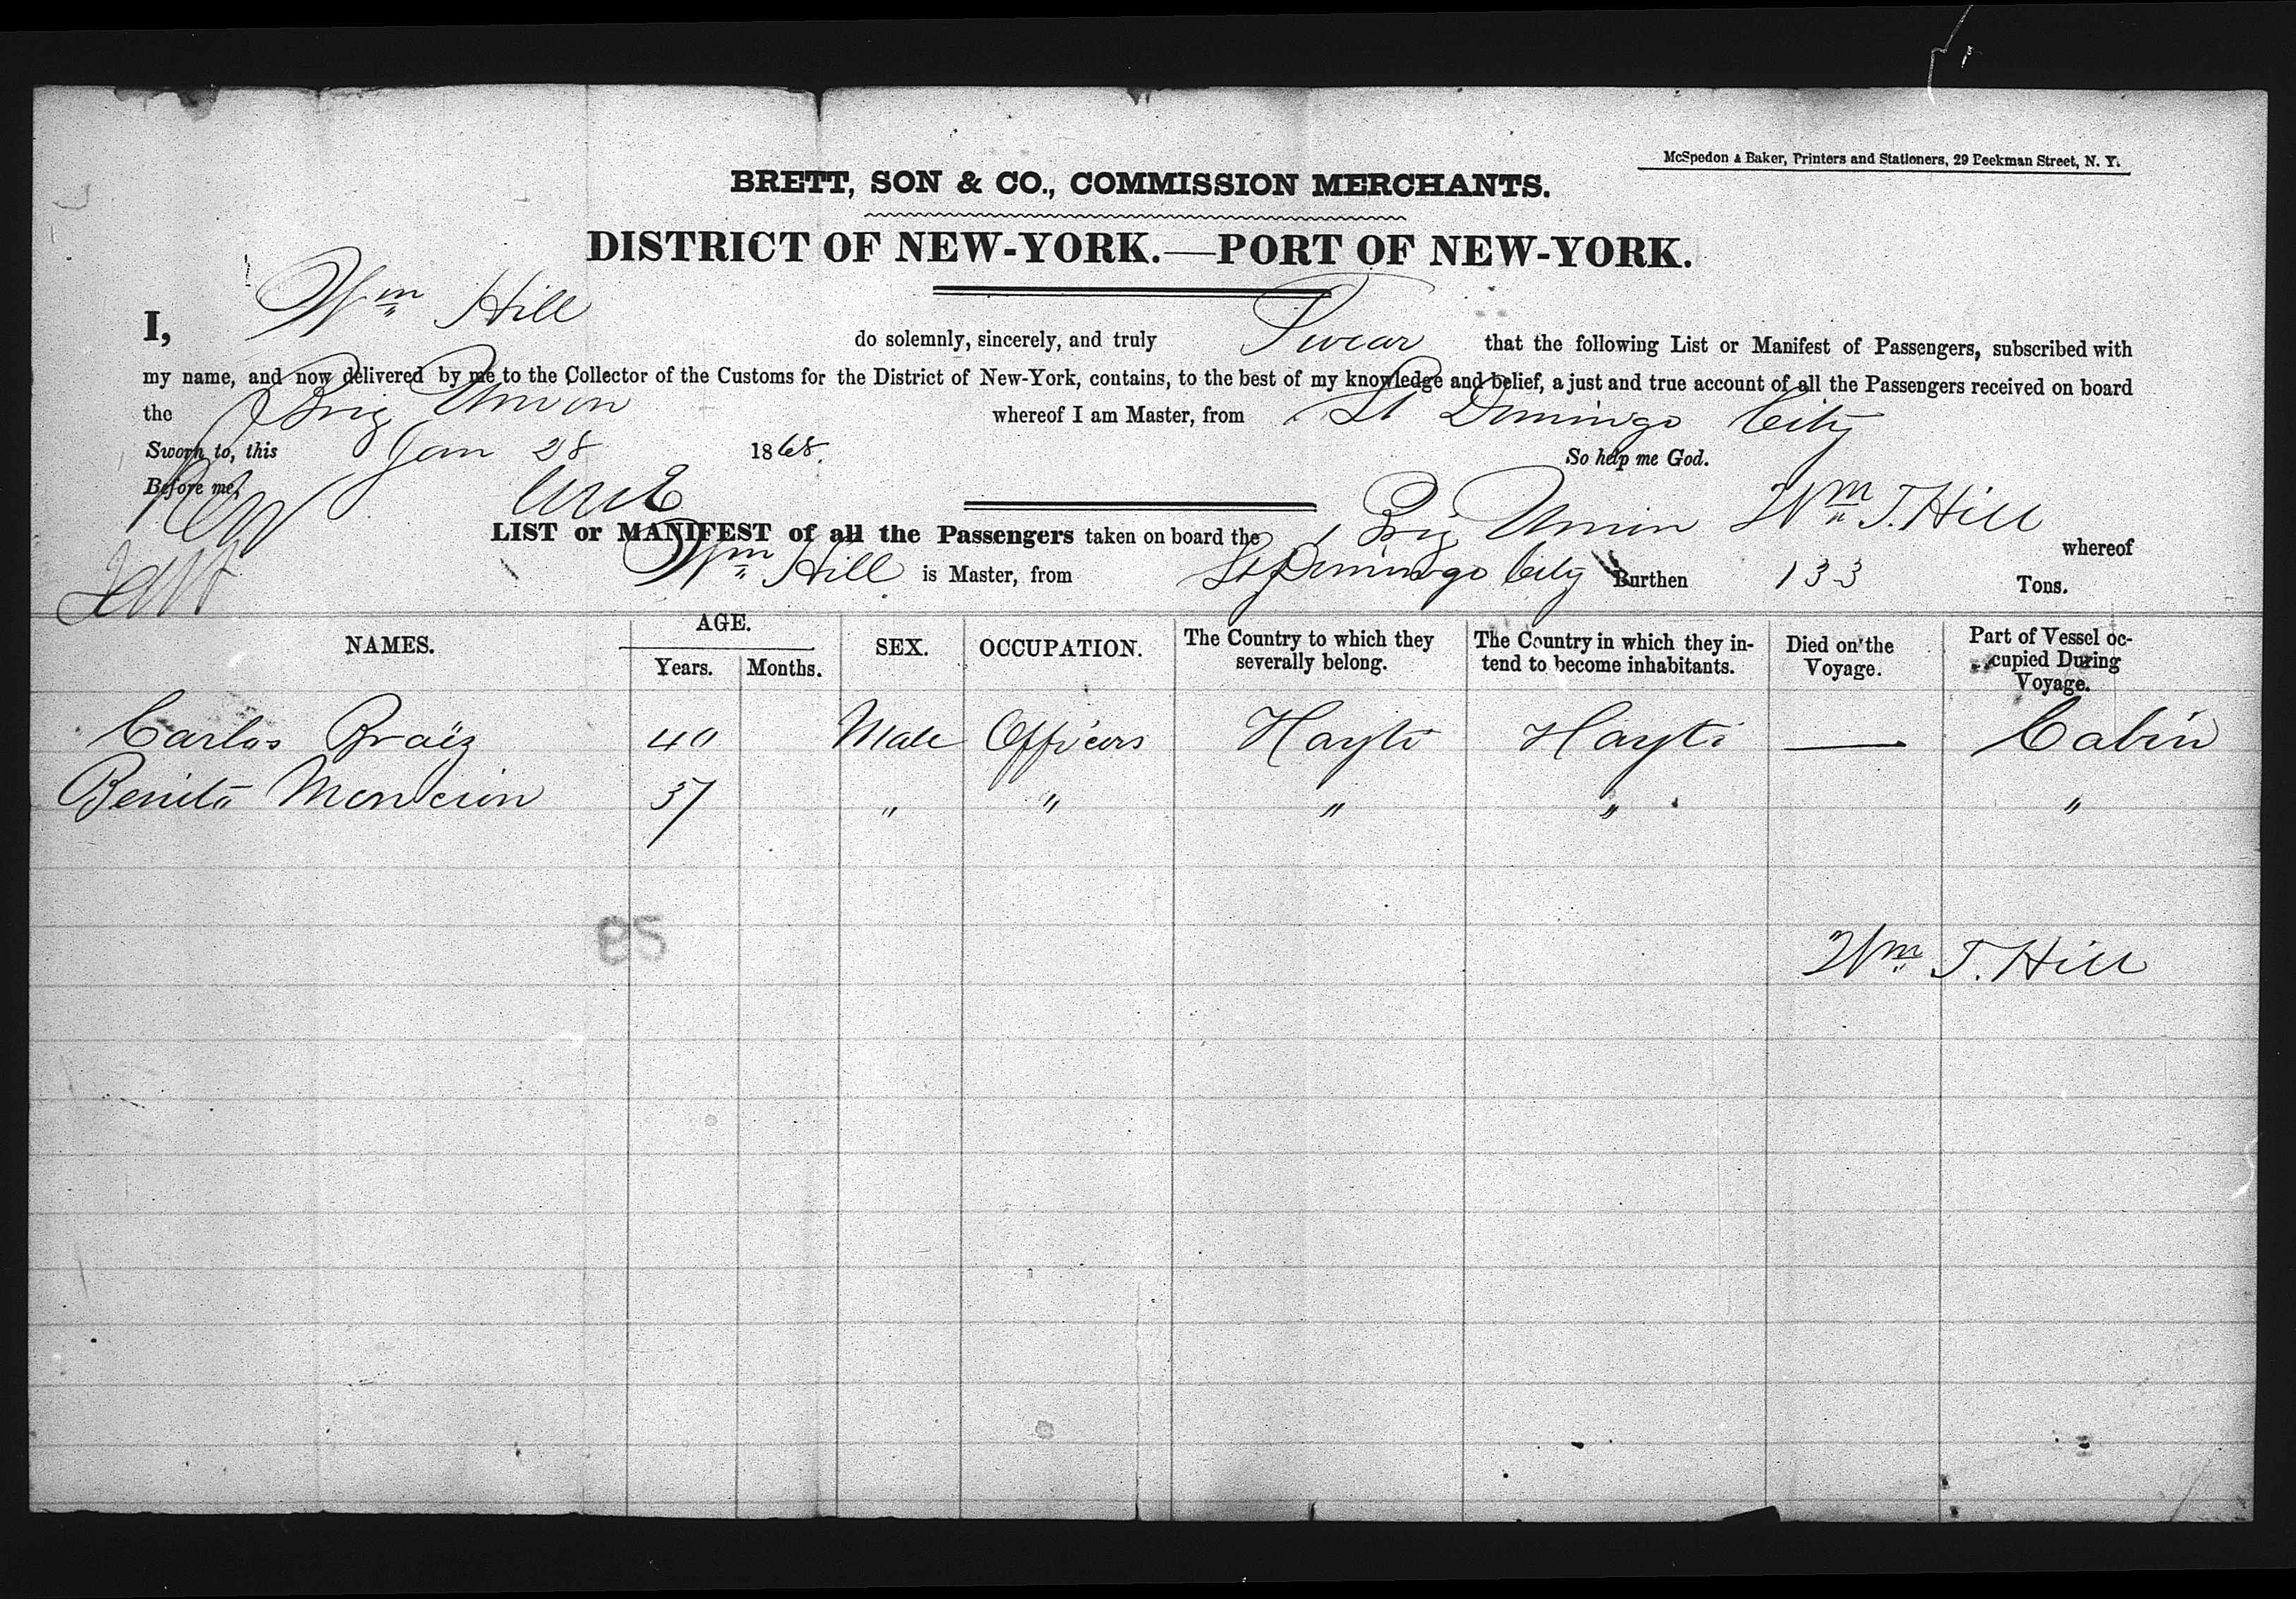 McSpedon & Baker, Printers and Stationers, 29 Beekman Street, N. Y.
BRETT, SON & CO., COMMISSION MERCHANTS.
DISTRICT OF NEW-YORK.—PORT OF NEW-YORK.
I, Wm Hill do solemnly, sincerely, and truly Swear that the following List or Manifest of Passengers, subscribed with
my name, and now delivered by me to the Collector of the Customs for the District of New-York, contains, to the best of my knowledge and belief, a just and true account of all the Passengers received on board
the Brig Union whereof I am Master, from St Domingo City
Sworn to, this Jan 28 1868. So help me God.
Before me, Wm T. Hill
LIST or MANIFEST of all the Passengers taken on board the Brig Union whereof
Wm Hill is Master, from St Domingo City Burthen 133 Tons.
NAMES. AGE. Years. Months. SEX. OCCUPATION. The Country to which they severally belong. The Country in which they intend to become inhabitants. Died on the Voyage. Part of Vessel occupied During Voyage.
Carlos 40 Male Officers Hayti Hayti — Cabin
Benito Moncion 37 " " " " "
85
Wm T. Hill